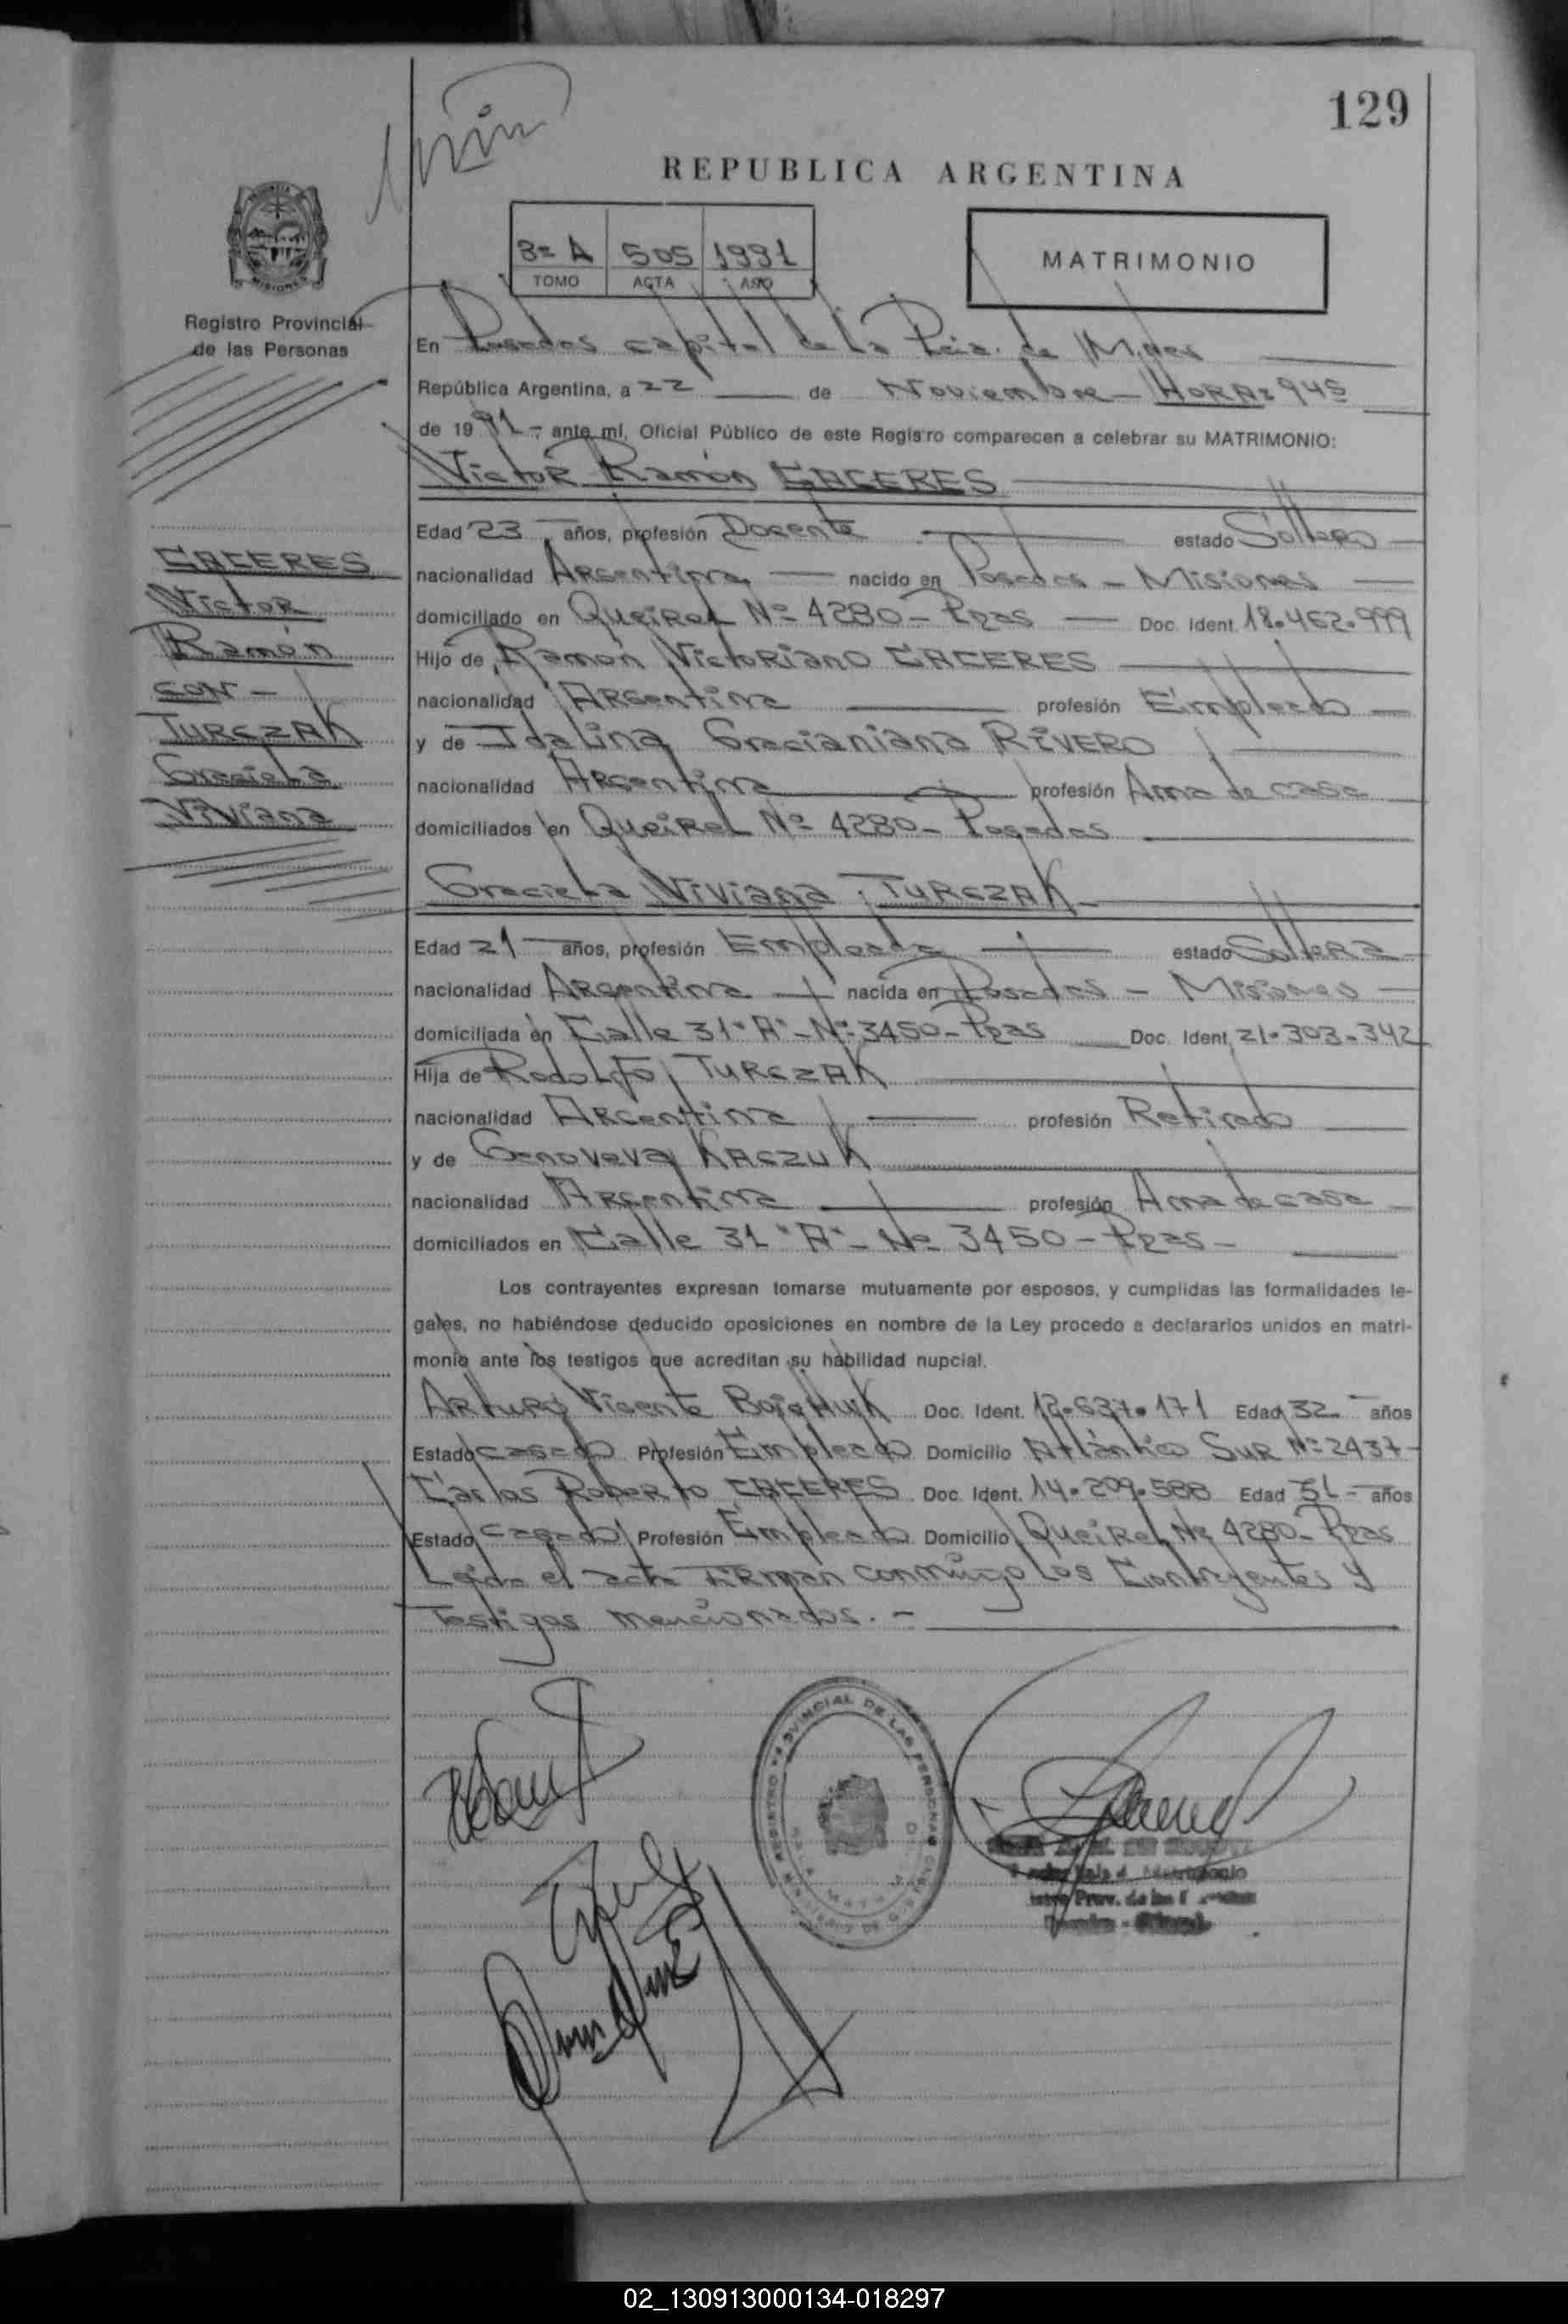 129
REPUBLICA ARGENTINA
8º A 505 1991
TOMO ACTA AÑO
MATRIMONIO
Registro Provincial
de las Personas
En Posadas capital de la Pcia. de M/nes
República Argentina, a 22 de Noviembre - HORA: 945
de 1991 -, ante mí, Oficial Público de este Registro comparecen a celebrar su MATRIMONIO:
Victor Ramón CACERES
Edad 23 años, profesión Docente estado Soltero
nacionalidad Argentina nacido en Posadas - Misiones
domiciliado en Queirel Nº 4280 - Pdas Doc. Ident. 18.462.999
Hijo de Ramon Victoriano CACERES
nacionalidad Argentina profesión Empleado
y de Idalina Gracianiana RIVERO
nacionalidad Argentina profesión Ama de casa
domiciliados en Queirel Nº 4280 - Posadas
CACERES
Victor
Ramón
CON -
TURCZAK
Graciela
Viviana
Graciela Viviana TURCZAK
Edad 21 años, profesión Empleada estado Soltera
nacionalidad Argentina nacida en Posadas - Misiones
domiciliada en Calle 31 "A" - Nº 3450 - Pdas Doc. Ident. 21.303.342
Hija de Rodolfo TURCZAK
nacionalidad Argentina profesión Retirado
y de Genoveva KACZUK
nacionalidad Argentina profesión Ama de casa
domiciliados en Calle 31 "A" - Nº 3450 - Pdas -
Los contrayentes expresan tomarse mutuamente por esposos, y cumplidas las formalidades le-
gales, no habiéndose deducido oposiciones en nombre de la Ley procedo a declararlos unidos en matri-
monio ante los testigos que acreditan su habilidad nupcial.
Arturo Vicente BojaHuK Doc. Ident. 12.637.171 Edad 32 años
Estado casado Profesión Empleado Domicilio Atlántico Sur Nº 2437
Carlos Roberto CACERES Doc. Ident. 14.209.588 Edad 31 - años
Estado casado Profesión Empleado Domicilio Queirel Nº 4280 - Pdas
Leída el acta firman conmigo los Contrayentes y
Testigos mencionados. -
REGISTRO PROVINCIAL DE LAS PERSONAS
02_130913000134-018297